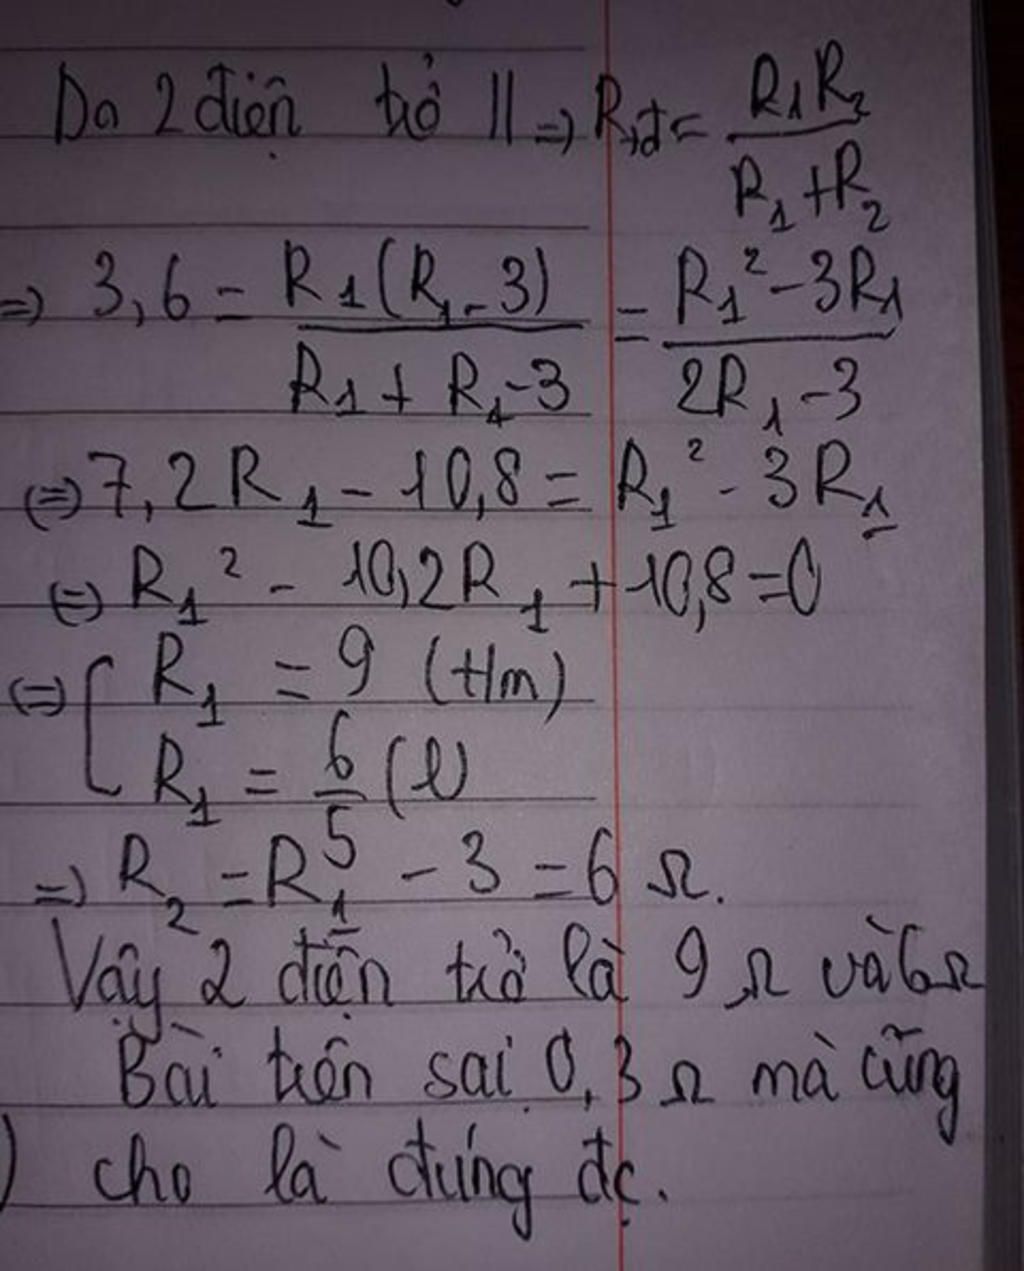 Do 2 điện trở // => Rtđ = R₁R₂ / (R₁ + R₂)
=> 3,6 = R₁(R₁ - 3) / (R₁ + R₁ - 3) = (R₁² - 3R₁) / (2R₁ - 3)
<=> 7,2R₁ - 10,8 = R₁² - 3R₁
<=> R₁² - 10,2R₁ + 10,8 = 0
<=> [ R₁ = 9 (t/m)
R₁ = 6/5 (l)
=> R₂ = R₁ - 3 = 6 Ω.
Vậy 2 điện trở là 9 Ω và 6 Ω
Bài trên sai 0,3 Ω mà cũng
cho là đúng đc.